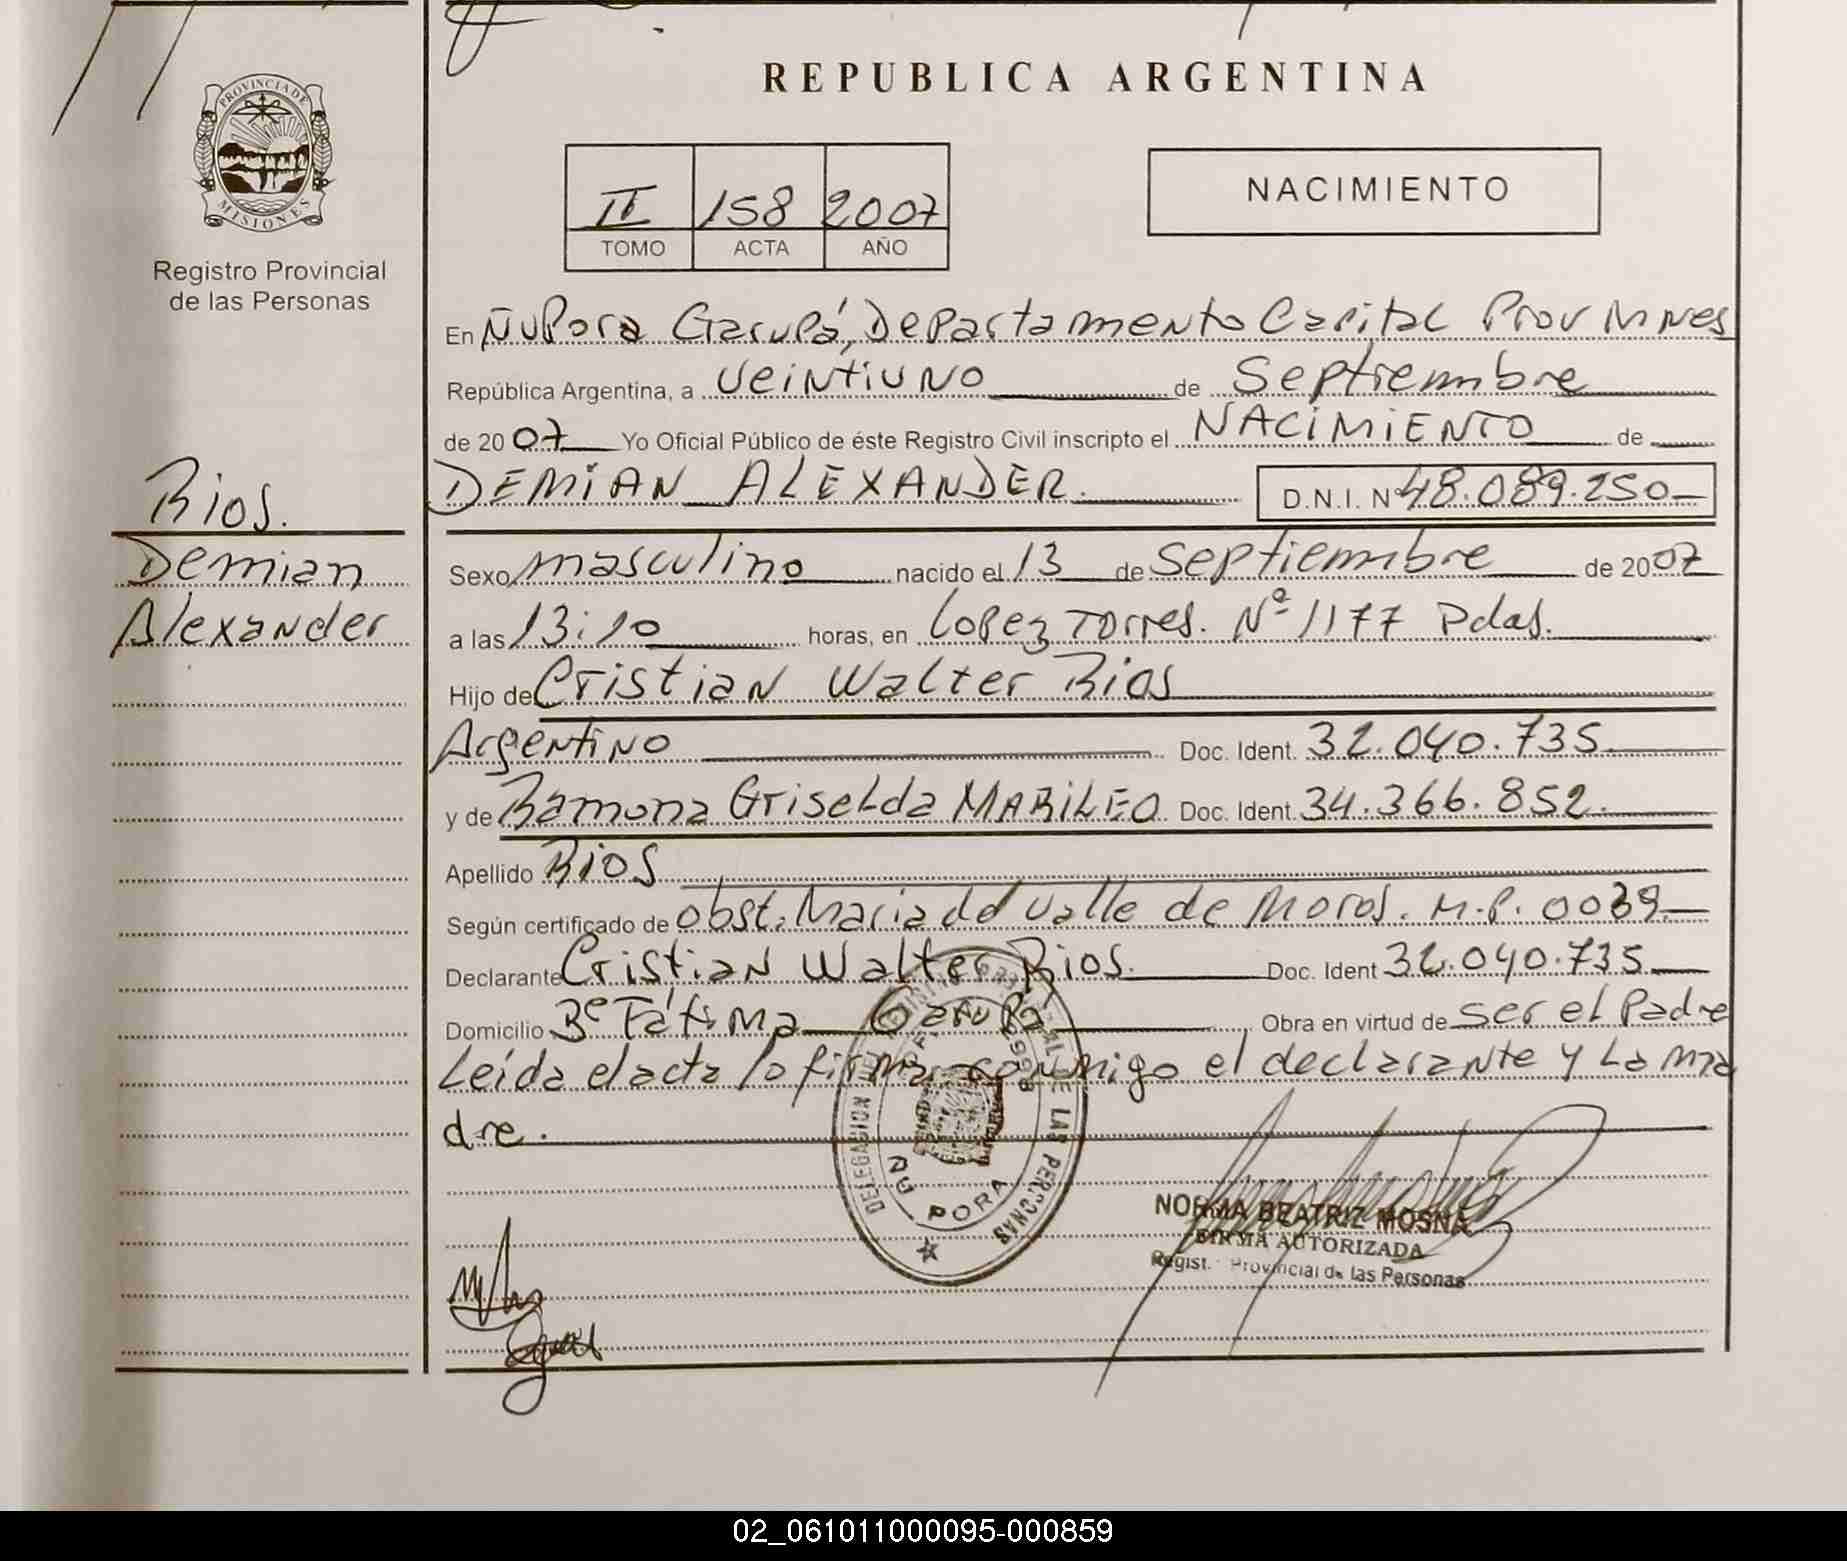 PROVINCIA DE
MISIONES
Registro Provincial
de las Personas
Rios.
Demian
Alexander
REPUBLICA ARGENTINA
II 158 2007
TOMO ACTA AÑO
NACIMIENTO
En Ñu Pora Garupá, Departamento Capital Prov Mnes
República Argentina, a veintiuno de Septiembre
de 2007 Yo Oficial Público de éste Registro Civil inscripto el NACIMIENTO de
DEMIAN ALEXANDER. D.N.I. Nº 48.089.250
Sexo masculino nacido el 13 de Septiembre de 2007
a las 13:10 horas, en Lopez Torres. Nº 1177 Pdas.
Hijo de Cristian Walter Rios
Argentino Doc. Ident. 32.040.735
y de Ramona Griselda MARILEO Doc. Ident. 34.366.852.
Apellido Rios
Según certificado de obst. Maria del Valle de Moral. M.P. 0039
Declarante Cristian Walter Rios. Doc. Ident 32.040.735
Domicilio Bº Fátima Garupá Obra en virtud de ser el Padre
Leída el acta la firma conmigo el declarante y La ma
dre.
DELEGACION DE LAS PERSONAS
ÑU PORA
NORMA BEATRIZ MOSNA
FIRMA AUTORIZADA
Regist. Provincial de las Personas
02_061011000095-000859